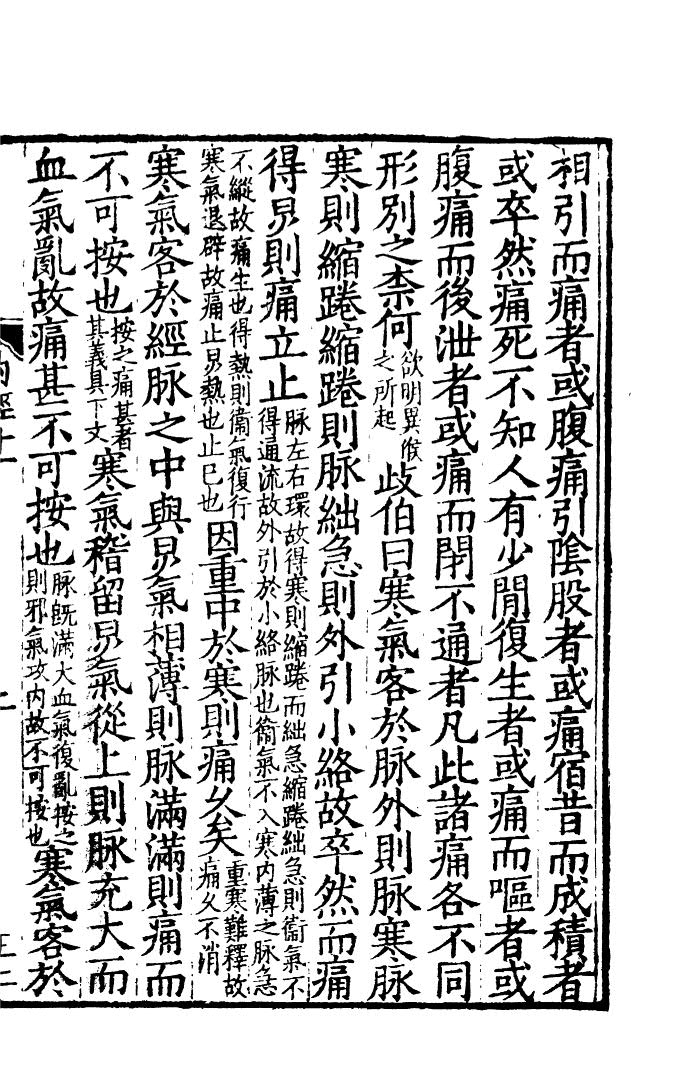 相引而痛者或腹痛引陰股者或痛宿昔而成積者
或卒然痛死不知人有少閒復生者或痛而嘔者或
腹痛而後泄者或痛而閉不通者凡此諸痛各不同
形別之柰何欲明異候之所起歧伯曰寒氣客於脉外則脉寒脉
寒則縮踡縮踡則脉絀急則外引小絡故卒然而痛
得炅則痛立止脉左右環故得寒則縮踡而絀急縮踡絀急則衞氣不得通流故外引於小絡脉也衞氣不入寒内薄之脉急
不縱故痛生也得熱則衞氣復行寒氣退辟故痛止炅熱也止已也因重中於寒則痛乆矣重寒難釋故痛乆不消
寒氣客於經脉之中與炅氣相薄則脉滿滿則痛而
不可按也按之痛甚者其義具下文寒氣稽留炅氣從上則脉充大而
血氣亂故痛甚不可按也脉旣滿大血氣復亂按之則邪氣攻内故不可按也寒氣客於
内經十一